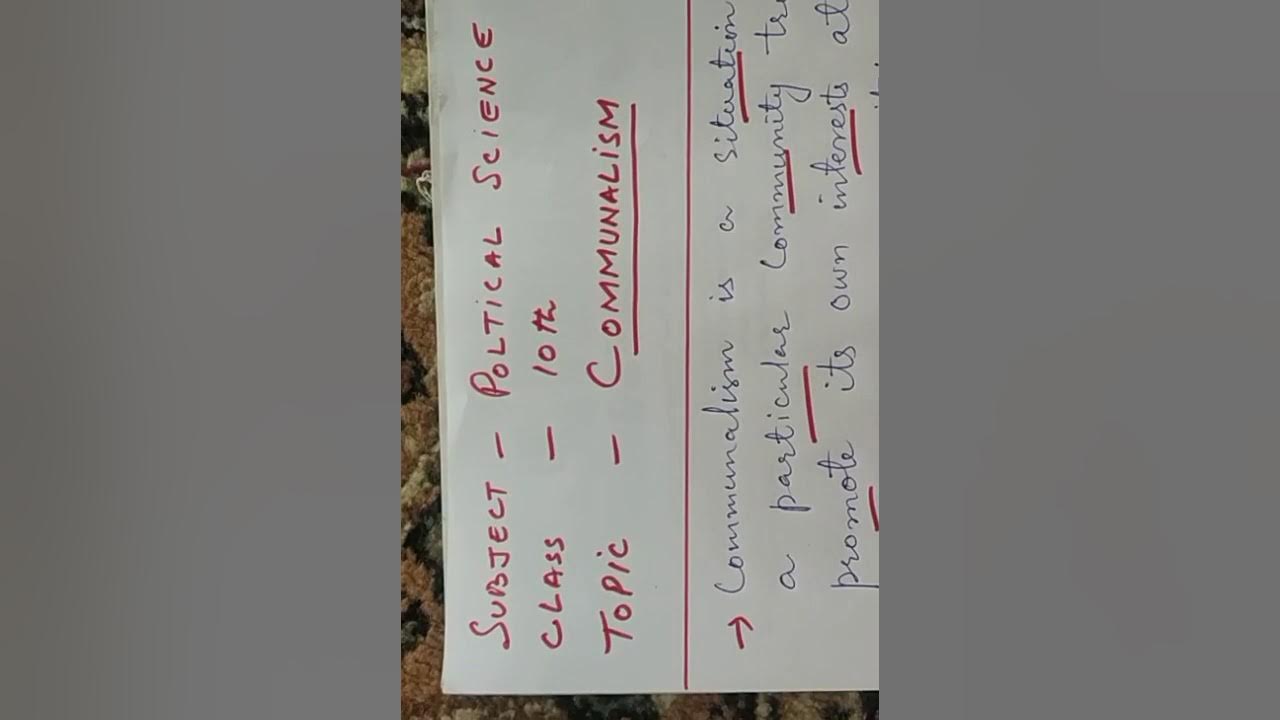 SUBJECT - POLTICAL SCIENCE
CLASS - 10th
TOPIC - COMMUNALISM
→ Communalism is a situation
a particular community
promote its own interests at